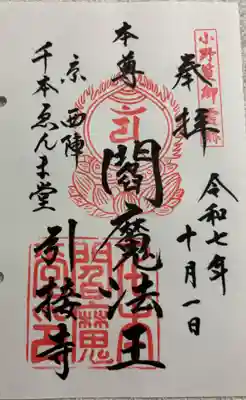 奉拝
令和七年十月一日
本尊
閻魔法王
京西陣
千本ゑんま堂
引接寺